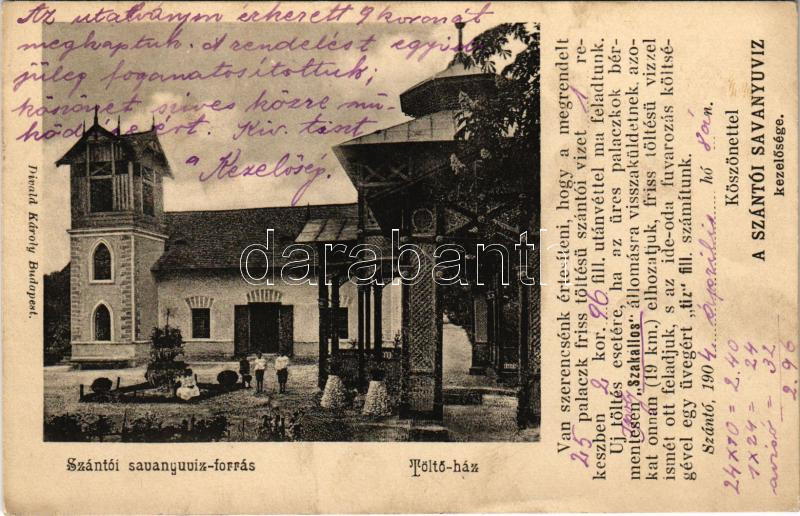 Az utalványon érkezett 9 koronát
megkaptuk. A rendelést
foganatosítottuk;
köszönet szives közre mű-
ködéseért. Kiv. tiszt
"Kezelőség.
Divald Károly Budapest.
darabanth
Szántói savanyuviz-forrás
Töltő-ház
Van szerencsénk értesíteni, hogy a megrendelt
25 palaczk friss töltésü szántói vizet 1 re-
keszben 2 kor. 96 fill. utánvéttel ma feladtunk.
Uj töltés esetére, ha az üres palaczkok bér-
mentesen „Szakállos" állomásra visszaküldetnek, azo-
kat onnan (19 km.) elhozatjuk, friss töltésü vizzel
ismét ott feladjuk, s az ide-oda fuvarozás költsé-
gével egy üvegért „tiz" fill. számítunk.
Szántó, 1904. április hó 8án.
Köszönettel
A SZÁNTÓI SAVANYUVIZ
kezelősége.
24x10 = 2.40
1x24 = 24
aviso = 32
2.96